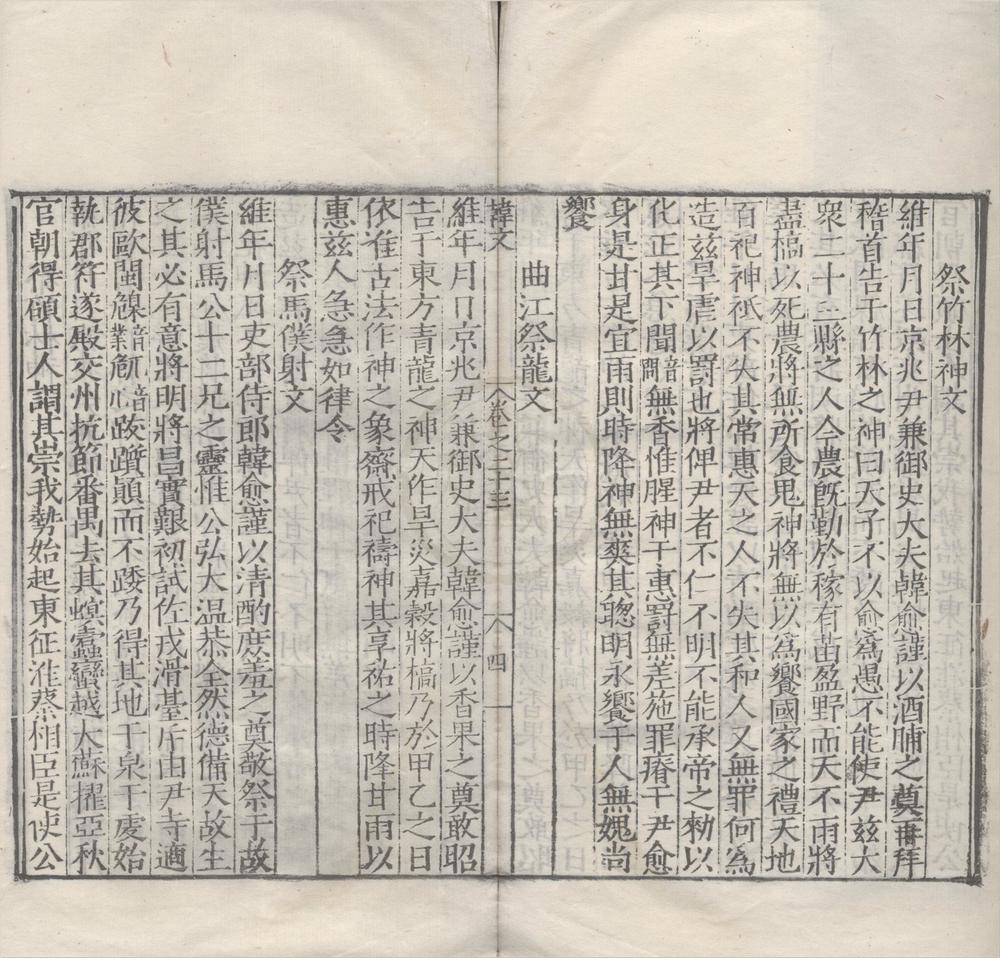 祭竹林神文
維年月日京兆尹兼御史大夫韓愈謹以酒脯之奠再拜
稽首告于竹林之神曰天子不以愈爲愚不能使尹兹大
衆二十三縣之人今農旣勤於稼有苗盈野而天不雨將
盡槁以死農將無所食鬼神將無以爲饗國家之禮天地
百祀神祇不失其常惠天之人不失其和人又無罪何爲
造兹旱虐以罰也將俾尹者不仁不明不能承帝之勑以
化正其下聞音問無香惟腥神于惠罰無差施罪瘠于尹愈
身是甘是宜雨則時降神無爽其聰明永饗于人無媿尚
饗
曲江祭龍文
韓文 卷之二十三 四
維年月日京兆尹兼御史大夫韓愈謹以香果之奠敢昭
告于東方青龍之神天作旱災嘉穀將槁乃於甲乙之日
依准古法作神之象齋戒祀禱神其享祐之時降甘雨以
惠兹人急急如律令
祭馬僕射文
維年月日吏部侍郎韓愈謹以清酌庶羞之奠敬祭于故
僕射馬公十二兄之靈惟公弘大温恭全然德備天故生
之其必有意將明將昌實艱初試佐戎滑臺斥由尹寺適
彼甌閩臲音業卼音兀跋躓顛而不踣乃得其地于泉于虔始
執郡符遂殿交州抗節番禺去其螟蠹蠻越大蘇擢亞秋
官朝得碩士人謂其崇我勢始起東征淮蔡相臣是使公